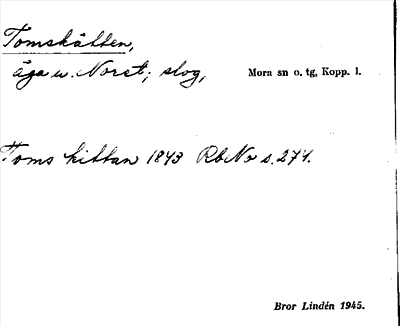 Tomskätten,
äga u. Noret; slog, Mora sn o. tg, Kopp. l.
Toms kittan 1843 RbNo s. 274.
Bror Lindén 1945.